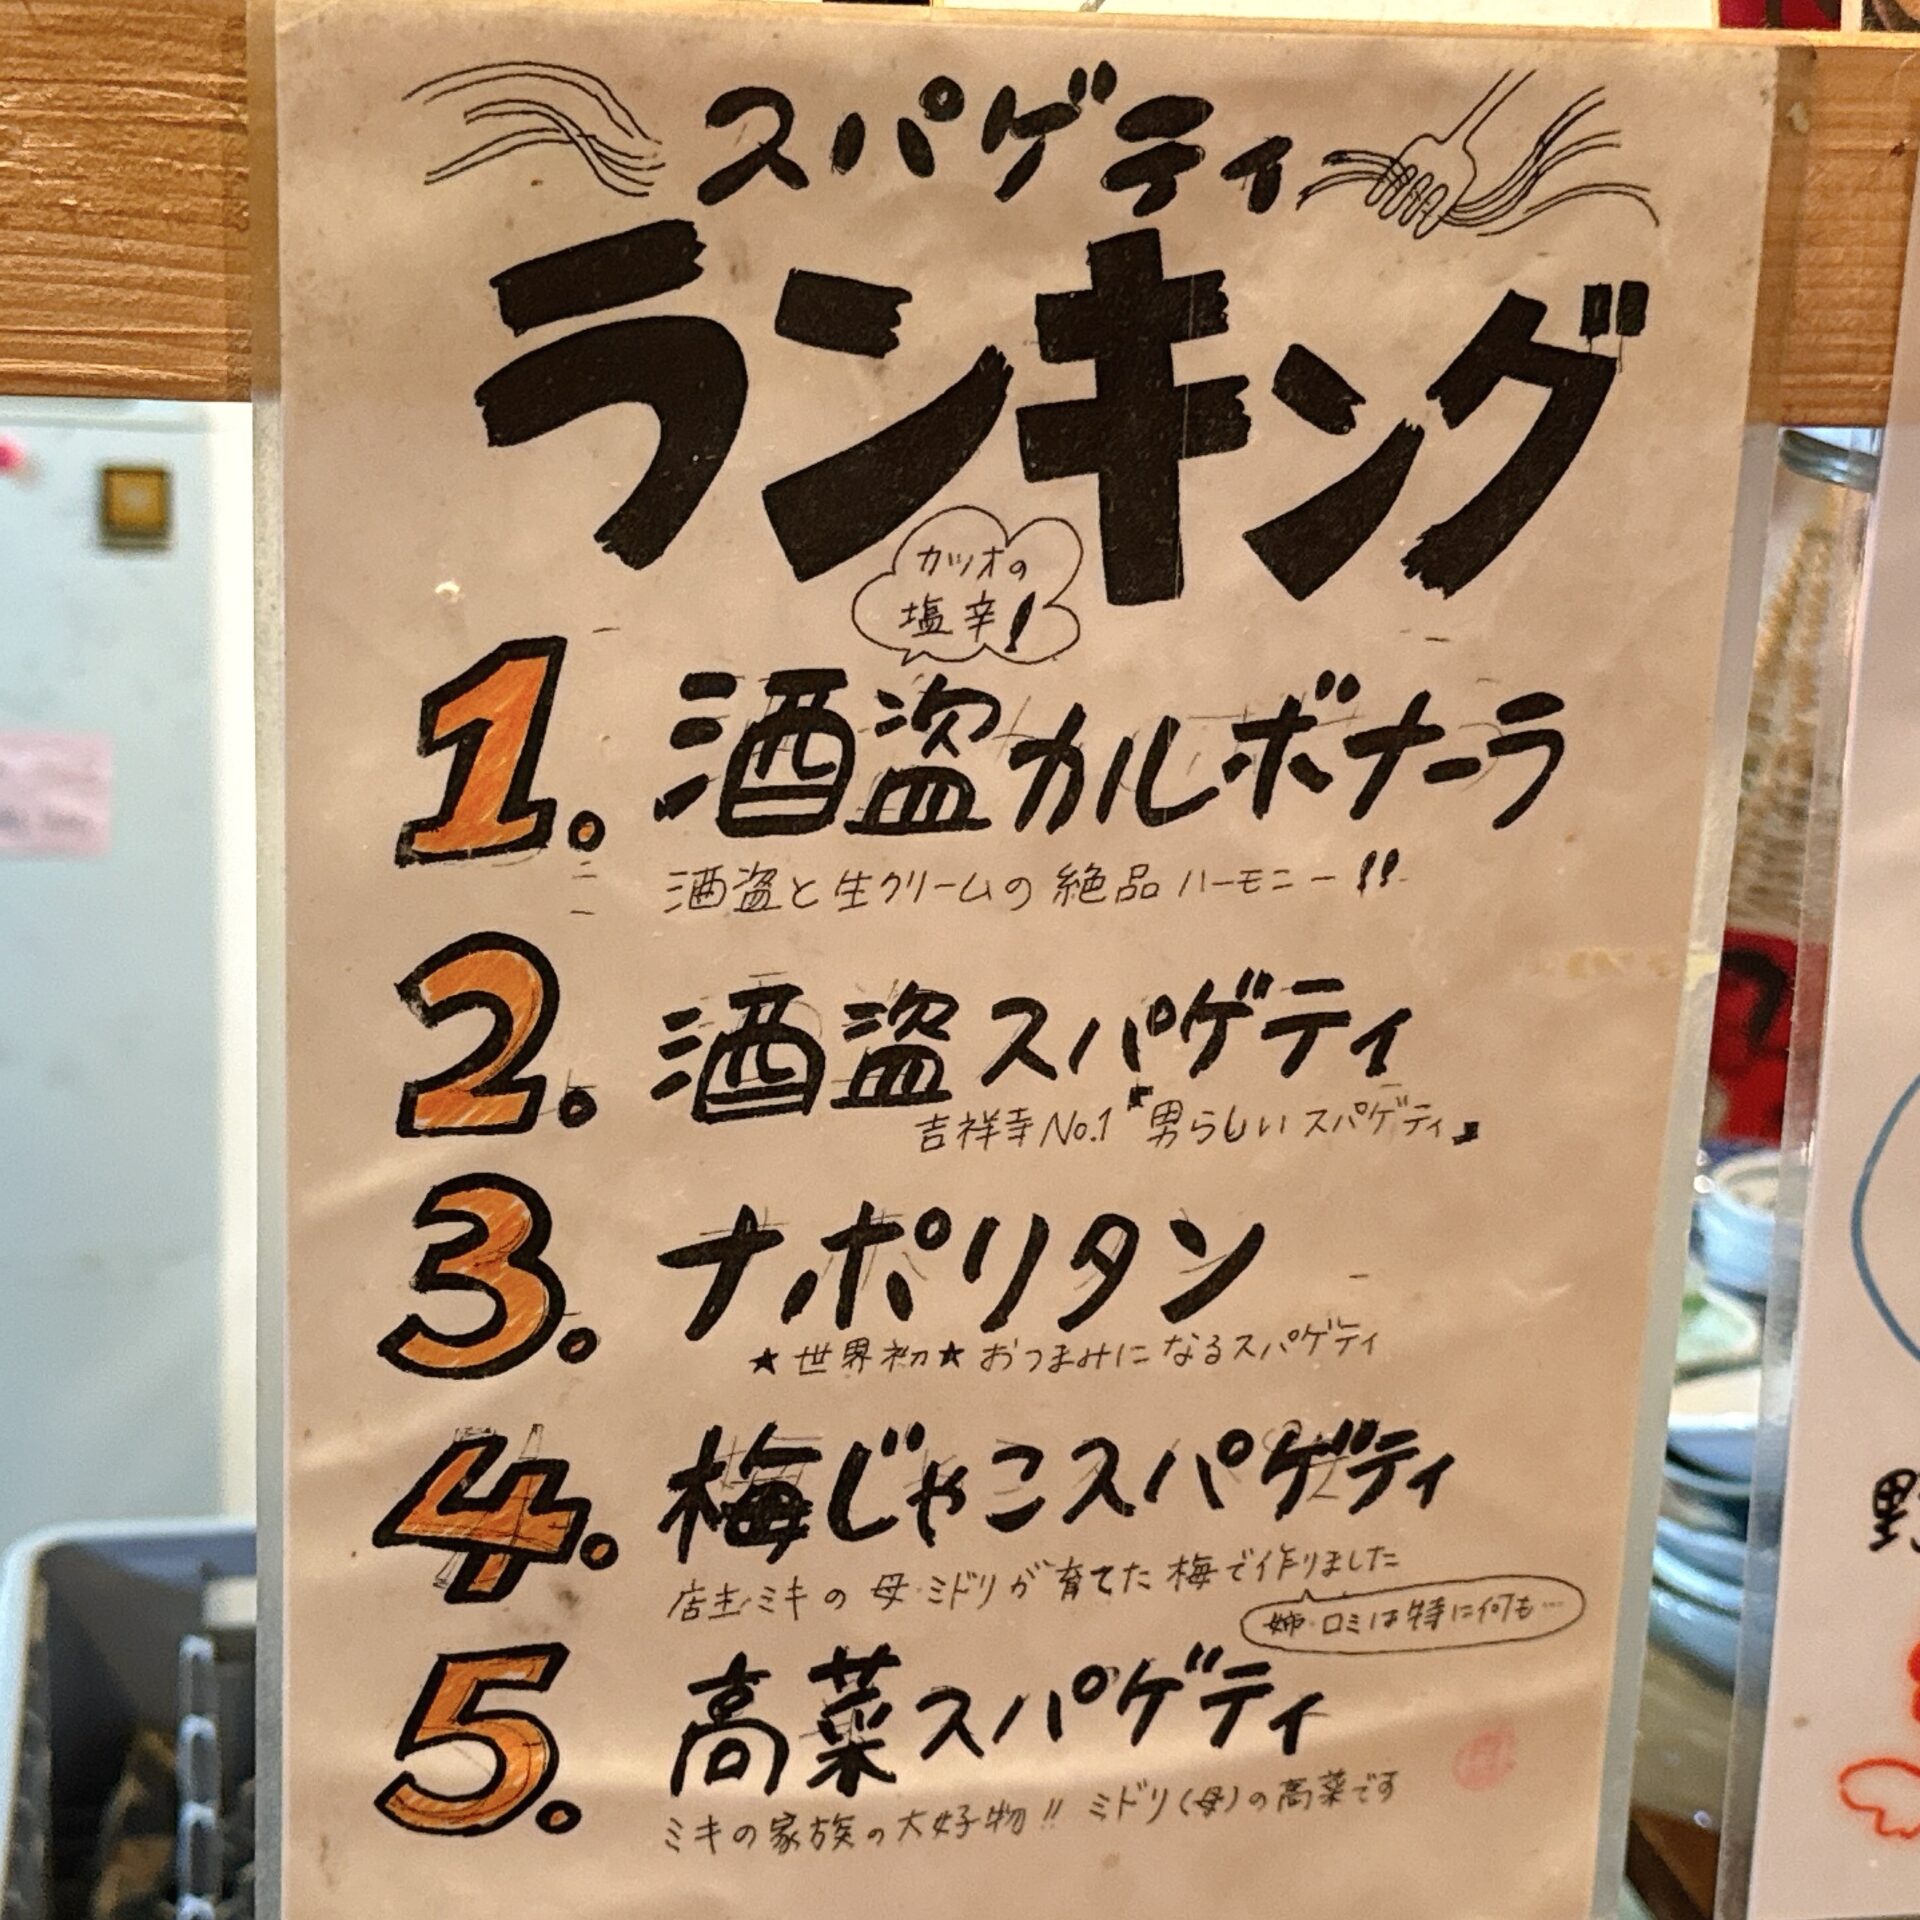 スパゲティ
ランキング
カツオの
塩辛!
1. 酒盗カルボナーラ
酒盗と生クリームの絶品ハーモニー!!
2. 酒盗スパゲティ
吉祥寺No.1『男らしいスパゲティ』
3. ナポリタン
★世界初★おつまみになるスパゲティ
4. 梅じゃこスパゲティ
店主・ミキの母・ミドリが育てた梅で作りました
姉・ロミは特に何も…
5. 高菜スパゲティ
ミキの家族の大好物!! ミドリ(母)の高菜です